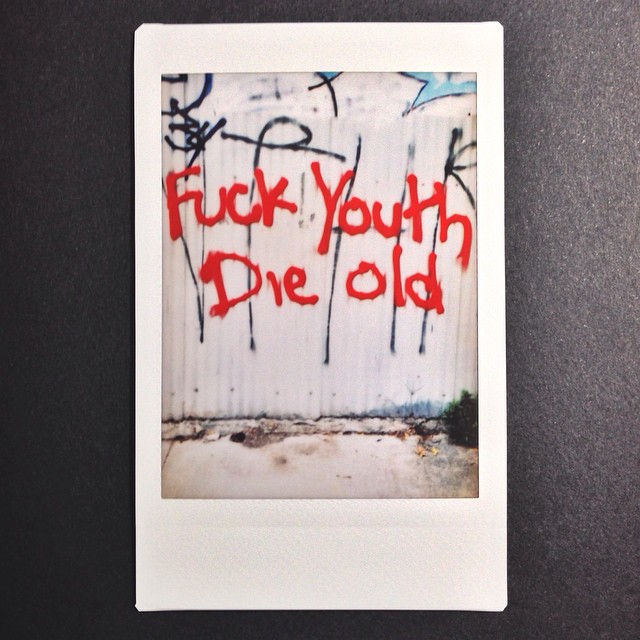 Fuck Youth
Die old